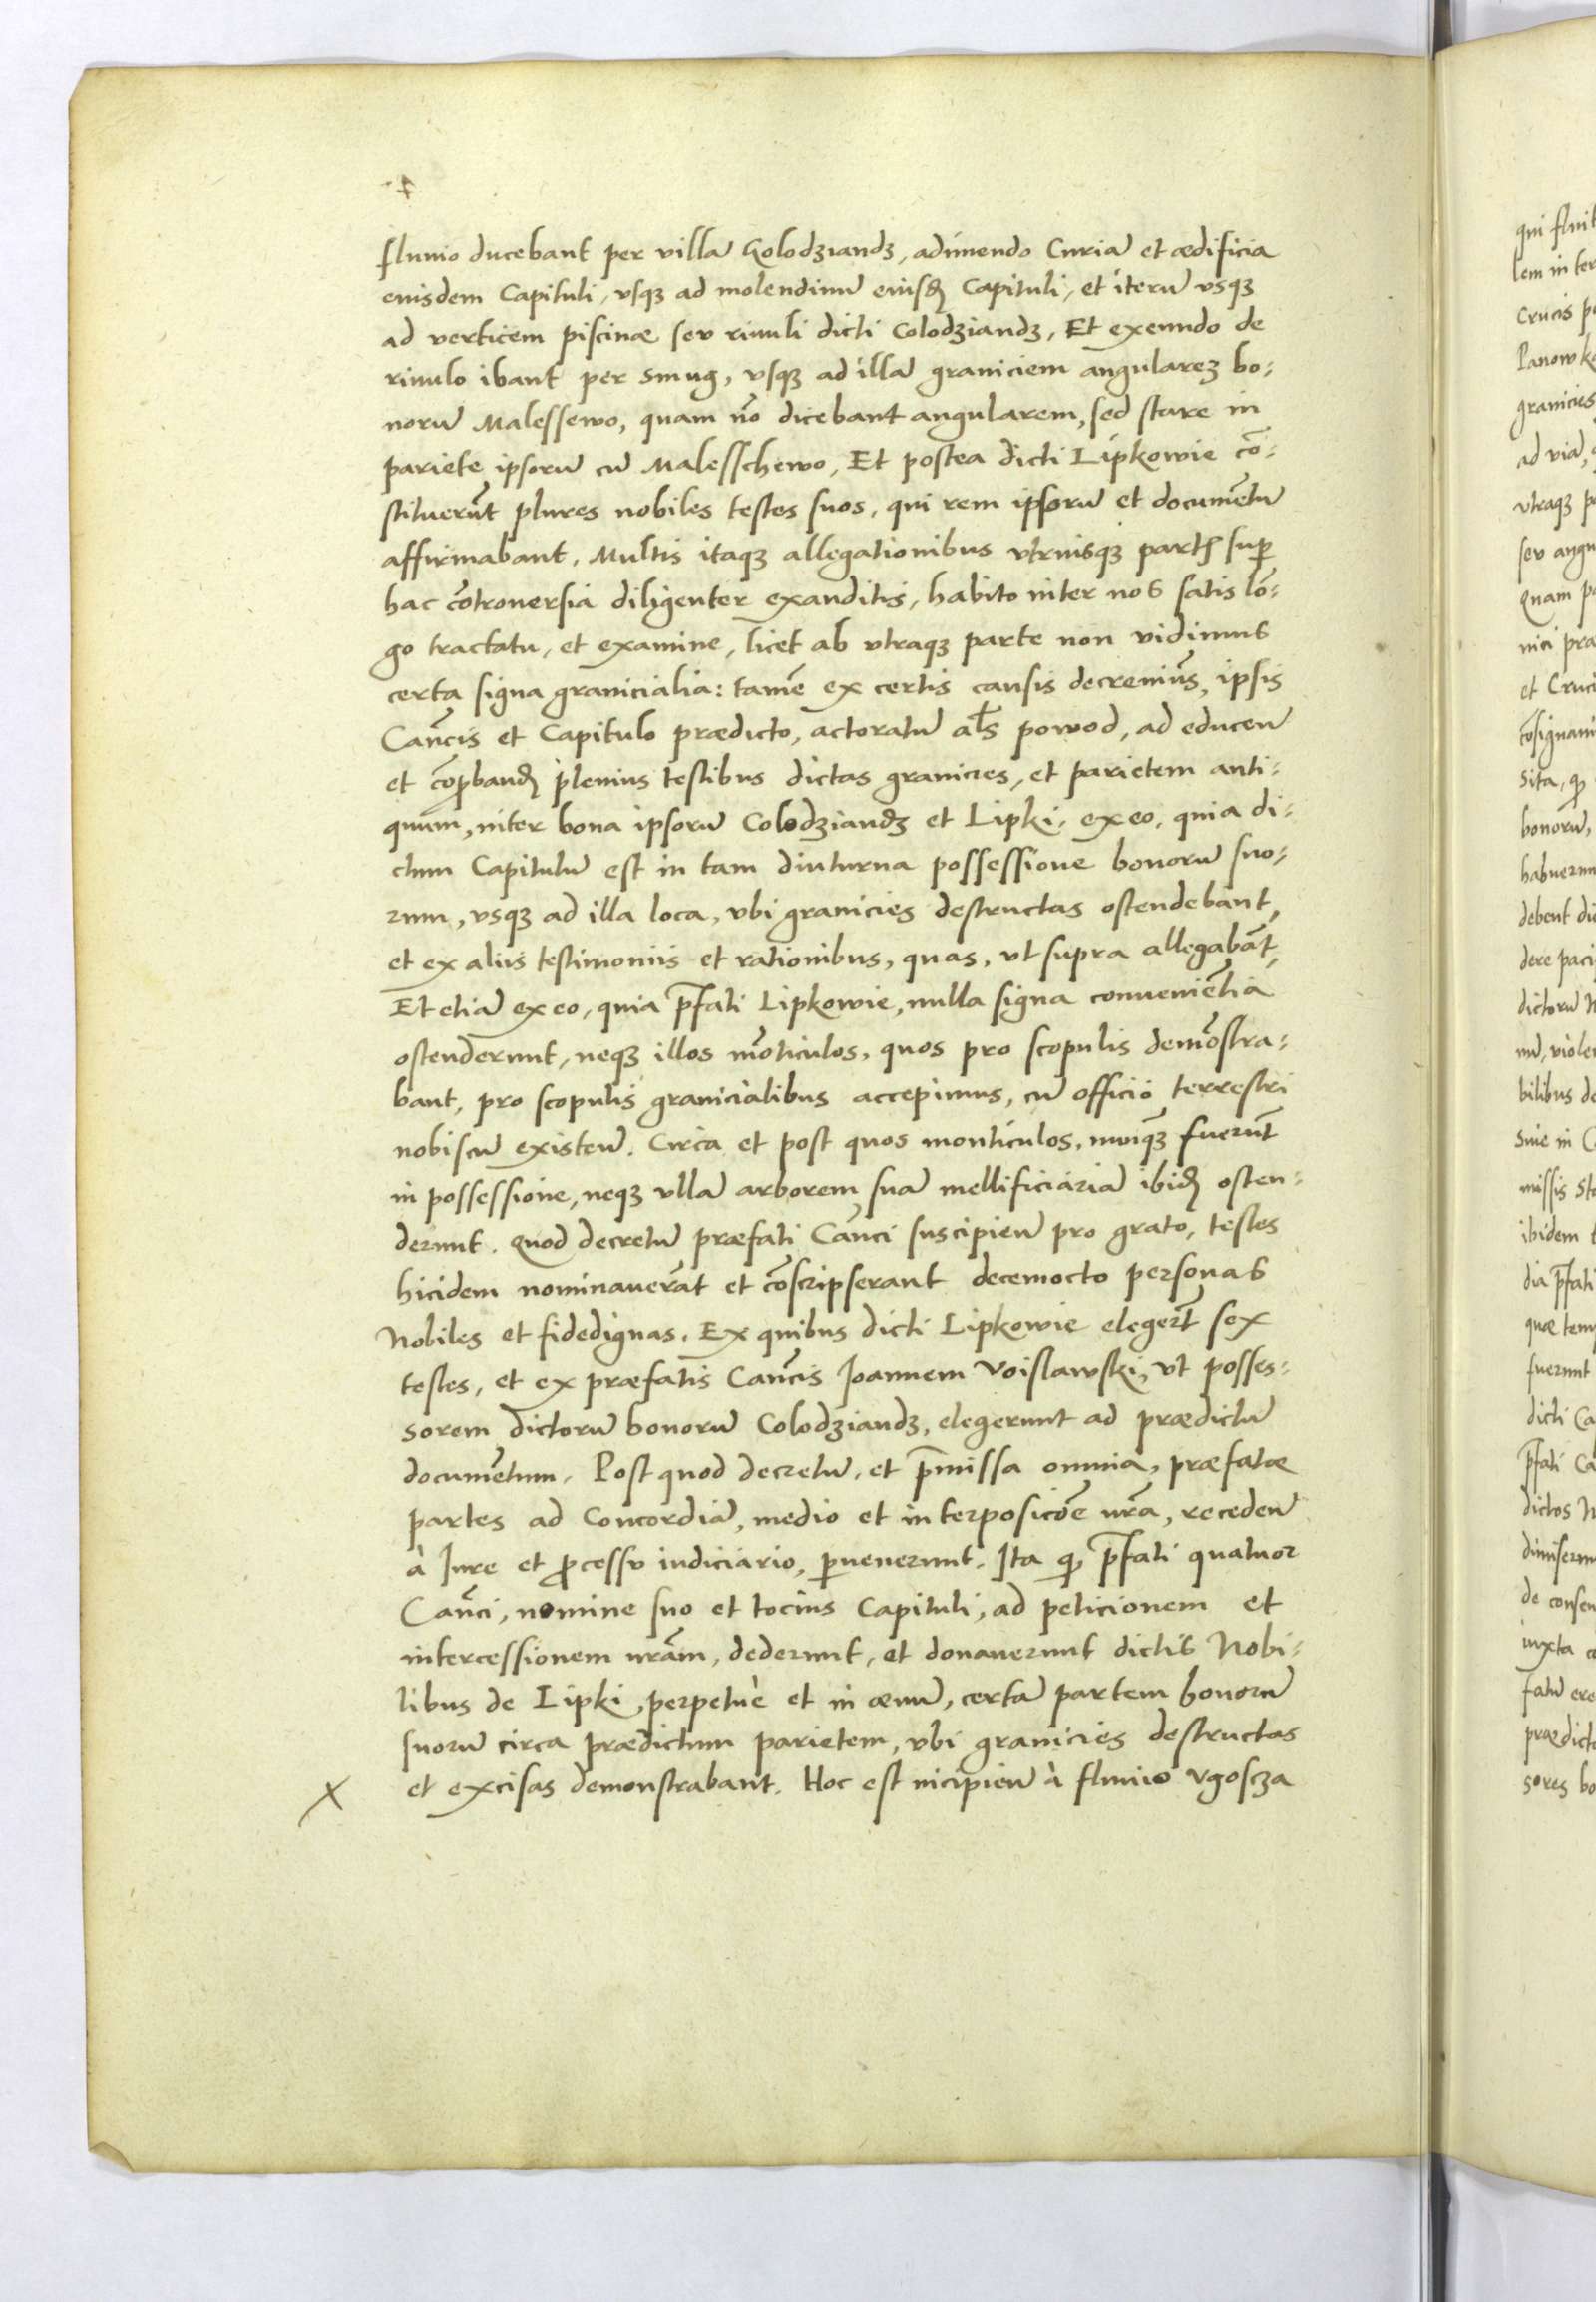 fluuio ducebant per villã Kolodziandz, adimendo Curiã et ædificia
euisdem Capituli, vsq3 ad molendinũ euisđ Capituli, et iterũ vsq3
ad verticem piscinæ sev riuuli dicti Colodziandz, Et exeundo de
riuulo ibant per smug, vsq3 ad illã graniciem angularez bo=
norũ Malessewo, quam nõ dicebant angularem, sed stare in
pariete ipsorũ cũ Malesschewo, Et postea dicti Lipkowie cõ=
stituerũt plures nobiles testes suos, qui rem ipsorũ et documẽtũ
affirmabant. Multis itaq3 allegationibus vtriusq3 part̃ sup̱
hac cõtrouersia diligenter exauditis, habito inter nos satis lõ=
go tractatu, et examine, licet ab vtraq3 parte non vidimus
certa signa granicialia: tamẽ ex certis causis decreuim̃s, ipsis
Cañcis et Capitulo prædicto, actoratũ als̃ powod, ad educeñ
et cõp̱banđ plenius testibus dictas granicies, et parietem anti=
quum, inter bona ipsorũ Colodziandz et Lipki. ex eo, quia di=
ctum Capitulũ est in tam diuturna possessione bonorũ suo=
rum, vsq3 ad illa loca, vbi granicies destructas ostendebant,
et ex aliis testimoniis et rationibus, quas, vt supra allegabãt,
Et etiã ex eo, quia p̃fati Lipkowie, nulla signa conueniẽtia
ostenderunt, neq3 illos mõticulos, quos pro scopulis demõstra=
bant, pro scopulis granicialibus accepimus, cũ officio terrestri
nobiscũ existeñ. Circa et post quos monticulos, nunq̃3 fuerũt
in possessione, neq3 vllã arborem suã mellificiariã ibiđ osten=
derunt. Quod decretũ præfati Cañci suscipieñ pro grato, testes
hicidem nominauerãt et cõscripserant decemocto personas
Nobiles et fidedignas. Ex quibus dicti Lipkowie elegerũt sex
testes, et ex præfatis Cañcis Joannem Voislawski, vt posses=
sorem dictorũ bonorũ Colodziandz, elegerunt ad prædictũ
documẽtum. Post quod decretũ, et p̃missa omnia, præfatæ
partes ad Concordiã, medio et interposicõe nr̃a, recedeñ
à Jure et p̱cessv iudiciario, p̱uenerunt. Ita q̱ p̃fati quatuor
Cañci, nomine suo et tocius Capituli, ad peticionem et
intercessionem nr̃am, dederunt, et donauerunt dictis Nobi=
libus de Lipki, perpetuè et in æuũ, certã partem bonorũ
suorũ circa prædictum parietem, vbi granicies destructas
x et excisas demonstrabant. Hoc est incipieñ à fluuio Vgoscza